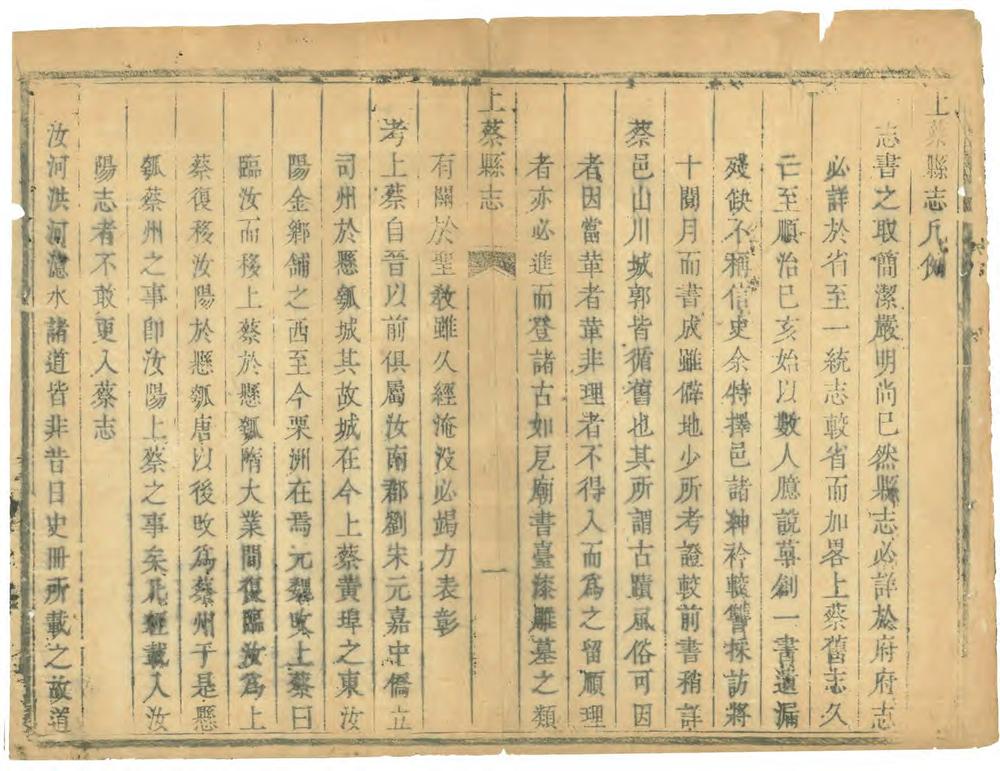 上蔡縣志凡例
志書之取簡潔嚴明尚巳然縣志必詳於府府志
必詳於省至一統志較省而加畧上蔡舊志久
亡至順治巳亥始以數人臆說草創一書遺漏
殘缺不稱信史余特擇邑諸紳衿較讐採訪將
十閱月而書成雖僻地少所考證較前書稍詳
蔡邑山川城郭皆循舊也其所謂古蹟風俗可因
者因當革者革非理者不得入而爲之留順理
者亦必進而登諸古如㞐廟書臺漆雕墓之類
上蔡縣志
一
有關於聖教雖久經淹没必竭力表彰
考上蔡自晉以前俱屬汝南郡劉宋元嘉中僑立
司州於懸瓠城其故城在今上蔡黃埠之東汝
陽金鄉舖之西至今栗洲在焉元魏攺上蔡曰
臨汝而移上蔡於懸瓠隋大業間復臨汝爲上
蔡復移汝陽於懸瓠唐以後攺爲蔡州于是懸
瓠蔡州之事卽汝陽上蔡之事矣凡經載入汝
陽志者不敢更入蔡志
汝河洪河㶏水諸道皆非昔日史冊所載之故道